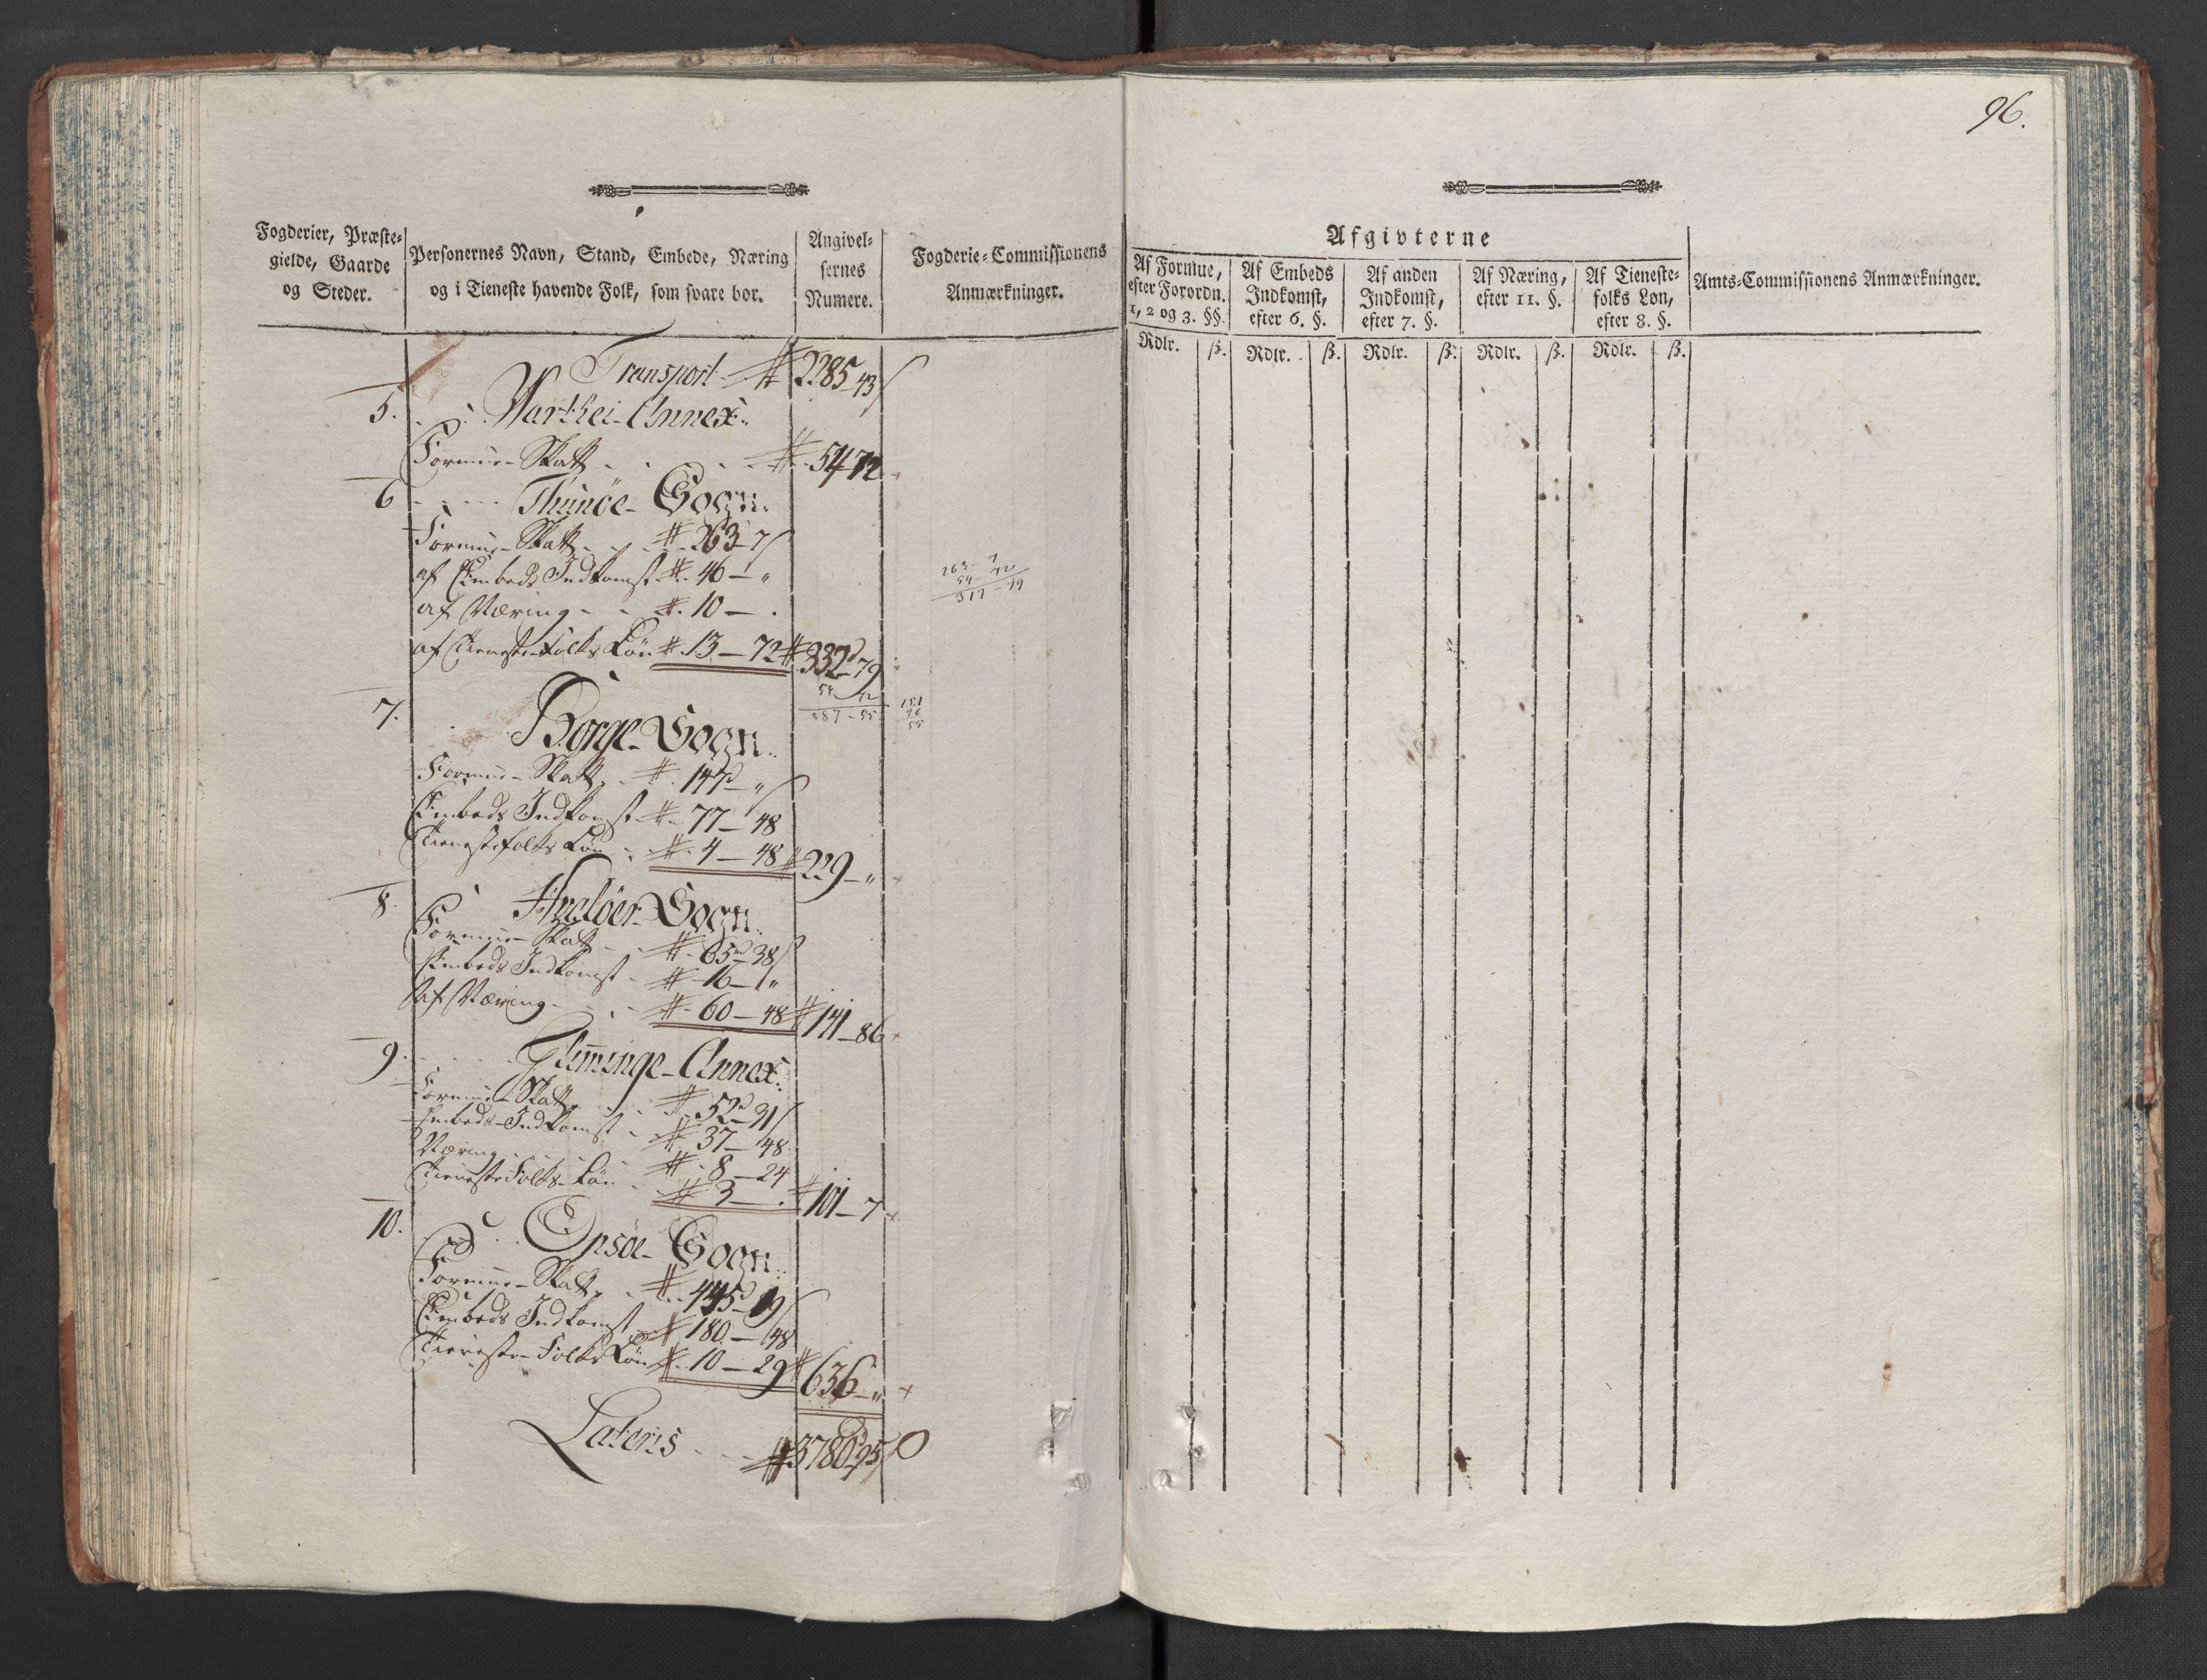 96.
Fogderier, Præste-
gielde, Gaarde
og Steder.
Personernes Navn, Stand, Embede, Næring
og i Tieneste havende Folk, som svare bør.
Angivel-
sernes
Numere.
Fogderie-Commissionens
Anmærkninger.
Transport # 2285 - 43
5. Warthei - Annex:
Formue-Skatt # 54 72
6 Thunøe - Sogn:
Formue-Skatt # 263 - 7
af Embeds Indkomst # 46 - "
af Næring - - # 10 - .
af Tieneste-Folks Løn # 13 - 72 # 332 - 79
263 - 7
54 - 72
317 - 79
54 72
287 - 55
151
96
55
7. Borge - Sogn:
Formue-Skatt # 147 - "
Embeds Indkomst # 77 - 48
Tienestefolks Løn # 4 - 48 # 229 - "
8. Hvaløer - Sogn:
Formue-Skatt # 65 - 38
Embeds Indkomst # 16 - "
Af Næring # 60 - 48 # 141 - 86
9. Glimminge - Annex:
Formue-Skatt # 52 - 31
Embeds-Indkomst # 37 - 48
Næring # 8 - 24
Tieneste Folks-Løn # 3 - . # 101 - 7
10. Onsøe - Sogn:
Formue-Skatt # 445 - 19
Embeds Indkomst # 180 - 48
Tieneste-Folks Løn # 10 - 29 # 636 - "
Lateris - - # 3780 - 95
Afgivterne
Af Formue,
efter Forordn.
1, 2 og 3. §§.
Af Embeds
Indkomst,
efter 6. §.
Af anden
Indkomst,
efter 7. §.
Af Næring,
efter 11. §.
Af Tieneste-
folks Løn,
efter 8. §.
Amts-Commissionens Anmærkninger.
Rdlr. ß. Rdlr. ß. Rdlr. ß. Rdlr. ß. Rdlr. ß.